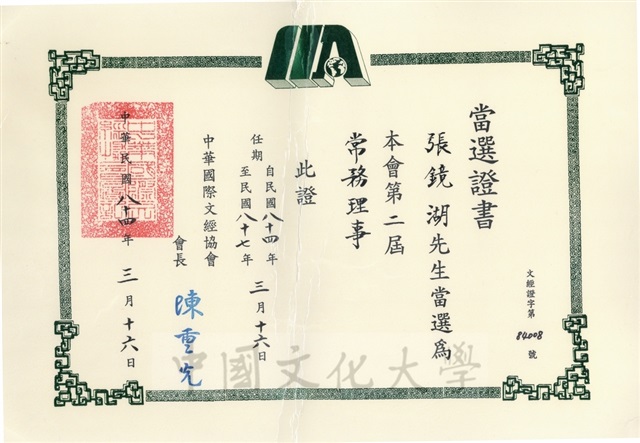 當選證書
文經證字第 84008 號
張鏡湖先生當選為
本會第二屆
常務理事
此證
任期 自民國八十四年三月十六日
至民國八十七年三月十六日
中華國際文經協會
會長 陳重光
中華民國八十四年三月十六日
中國文化大學